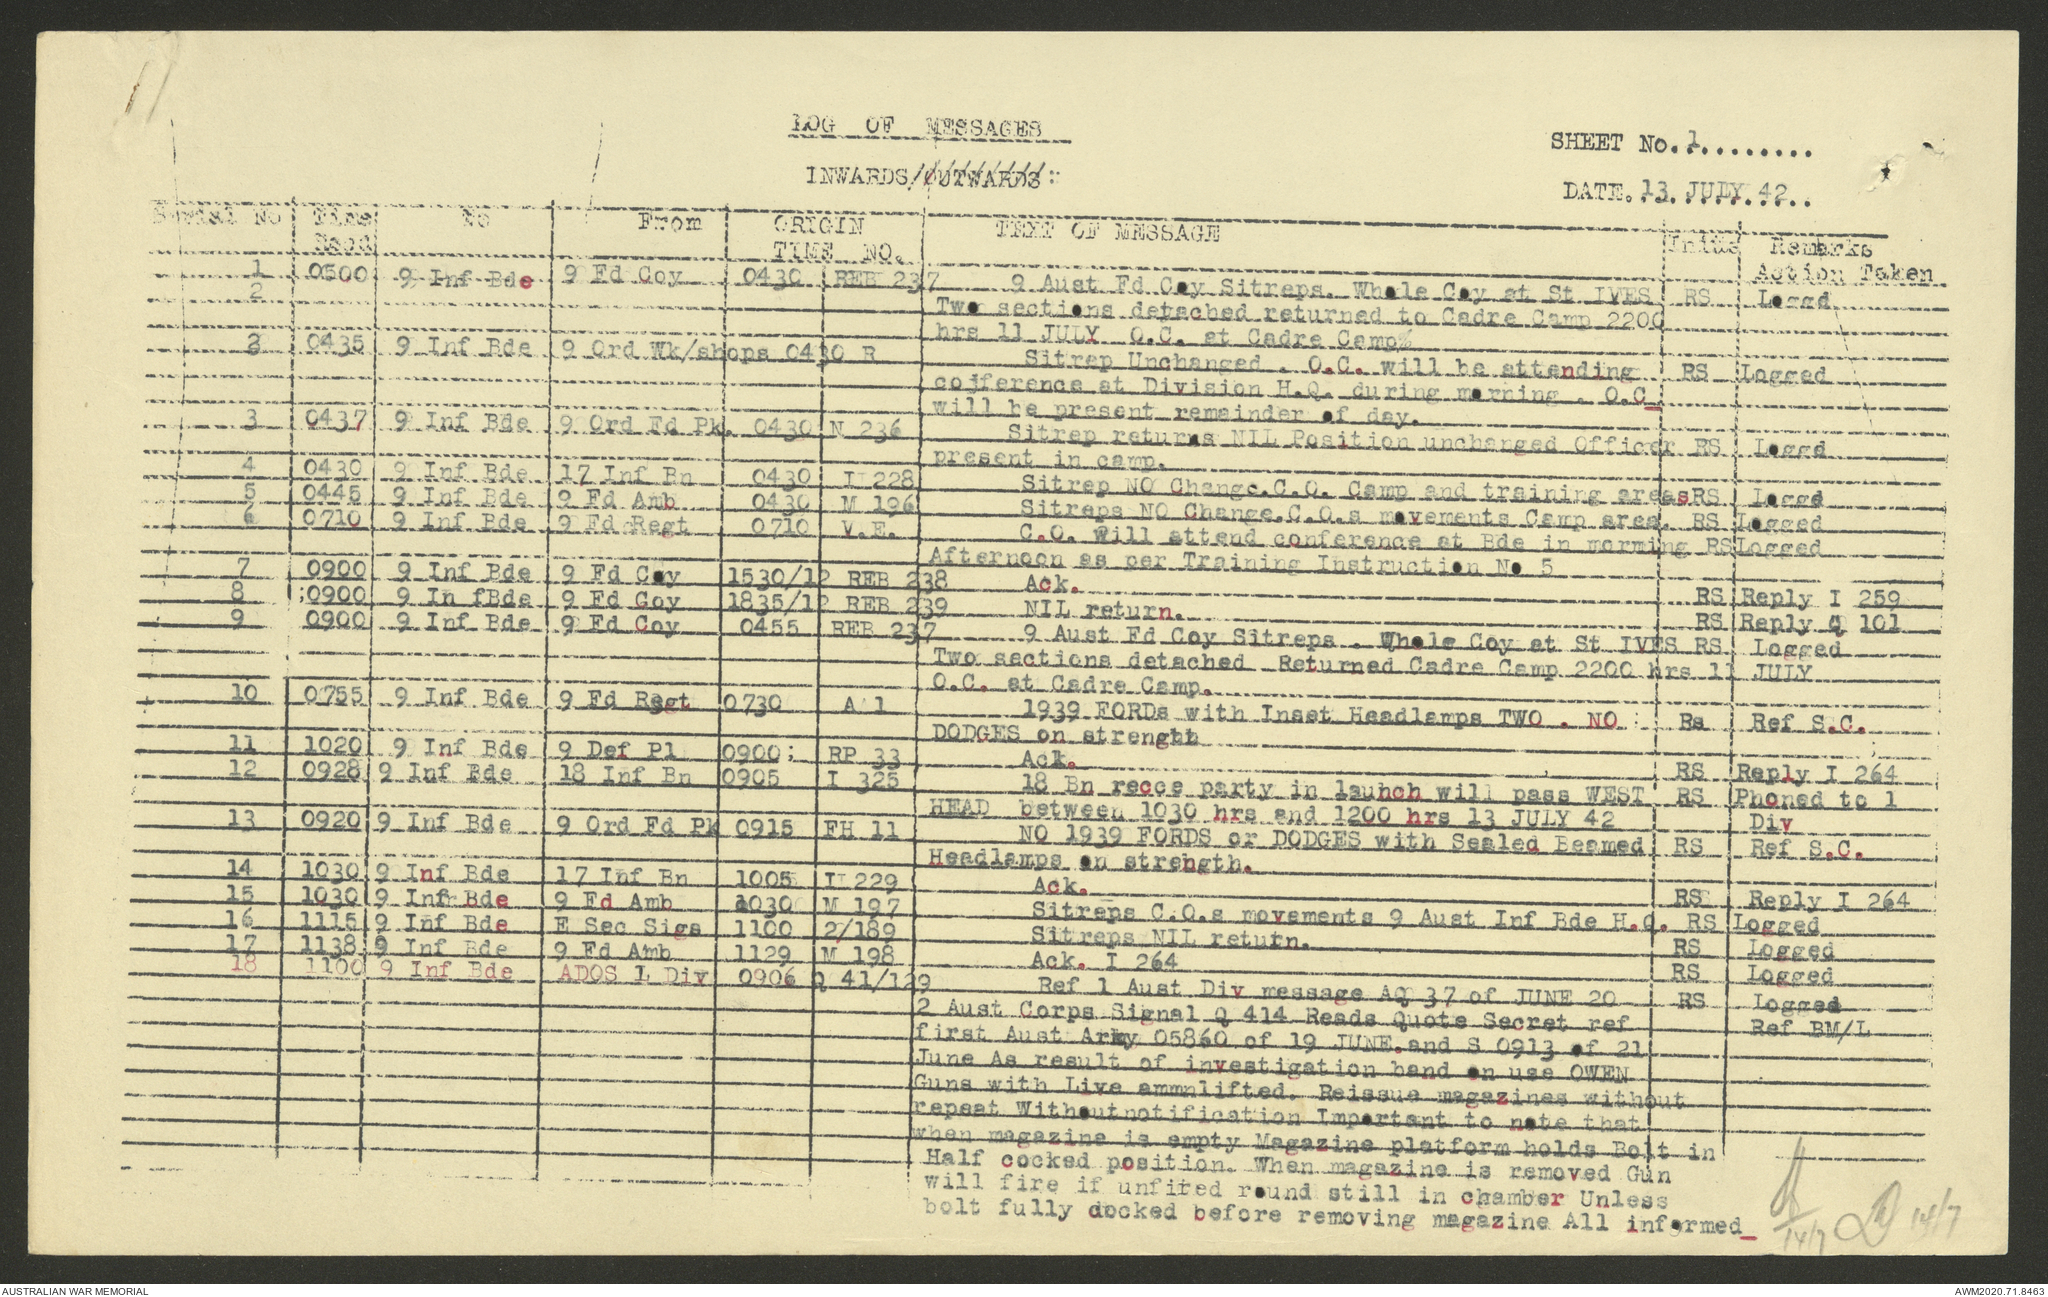 11
LOG OF MESSAGES
SHEET No.1.........
INWARDS/OUTWARDS::
DATE.13 JULY 42..
Serial No Time To From ORIGIN TEXT OF MESSAGE Initls Remarks
Recd TIME NO. Action Taken
1 0500 9 Inf Bde 9 Fd Coy 0430 REB 237 9 Aust Fd Coy Sitreps. Whole Coy at St IVES RS Loggd
2 Two sections detached returned to Cadre Camp 2200
hrs 11 JULY O.C. at Cadre Camp
2 0435 9 Inf Bde 9 Ord Wk/shops 0430 R Sitrep Unchanged . O.C. will be attending RS Logged
cojference at Division H.Q. during morning . O.C_
will be present remainder of day.
3 0437 9 Inf Bde 9 Ord Fd Pk. 0430 N 236 Sitrep returns NIL Position unchanged Officer RS Loggd
present in camp.
4 0430 9 Inf Bde 17 Inf Bn 0430 I 228 Sitrep NO Change.C.O. Camp and training areas RS Loggd
5 0445 9 Inf Bde 9 Fd Amb 0430 M 196 Sitreps NO Change.C.O.s movements Camp area. RS Logged
6 0710 9 Inf Bde 9 Fd Regt 0710 V.E. C.O. Will attend conference at Bde in morming RS Logged
Afternoon as per Training Instruction No 5
7 0900 9 Inf Bde 9 Fd Coy 1530/12 REB 238 Ack. RS Reply I 259
8 :0900 9 In fBde 9 Fd Coy 1835/12 REB 239 NIL return. RS Reply Q 101
9 0900 9 Inf Bde 9 Fd Coy 0455 REB 237 9 Aust Fd Coy Sitreps . Whole Coy at St IVES RS Logged
Two sections detached Returned Cadre Camp 2200 hrs 11 JULY
O.C. at Cadre Camp.
10 0755 9 Inf Bde 9 Fd Regt 0730 A 1 1939 FORDs with Inset Headlamps TWO . NO Rs Ref S.C.
DODGES on strength
11 1020 9 Inf Bde 9 Def Pl 0900; RP 33 Ack. RS Reply I 264
12 0928 9 Inf Bde 18 Inf Bn 0905 I 325 18 Bn recce party in launch will pass WEST RS Phoned to 1
HEAD between 1030 hrs and 1200 hrs 13 JULY 42 Div
13 0920 9 Inf Bde 9 Ord Fd Pk 0915 FH 11 NO 1939 FORDS or DODGES with Sealed Beamed RS Ref S.C.
Headlamps on strength.
14 1030 9 Inf Bde 17 Inf Bn 1005 I 229 Ack. RS Reply I 264
15 1030 9 Inf Bde 9 Fd Amb 1030 M 197 Sitreps C.O.s movements 9 Aust Inf Bde H.Q. RS Logged
16 1115 9 Inf Bde E Sec Sigs 1100 2/189 Sitreps NIL return. RS Logged
17 1138 9 Inf Bde 9 Fd Amb 1129 M 198 Ack. I 264 RS Logged
18 1100 9 Inf Bde ADOS 1 Div 0906 Q 41/129 Ref 1 Aust Div message AQ 37 of JUNE 20 RS Logged
2 Aust Corps Signal Q 414 Reads Quote Secret ref Ref BM/L
first Aust Army 05860 of 19 JUNE.and S 0913 of 21
June As result of investigation band on use OWEN
Guns with Live ammnlifted. Reissue magazines without
repeat Withoutnotification Important to note that
when magazine is empty Magazine platform holds Bolt in
Half cocked position. When magazine is removed Gun
will fire if unfired round still in chamber Unless
bolt fully cocked before removing magazine All informed_
14/7 14/7
AUSTRALIAN WAR MEMORIAL
AWM2020.71.8463